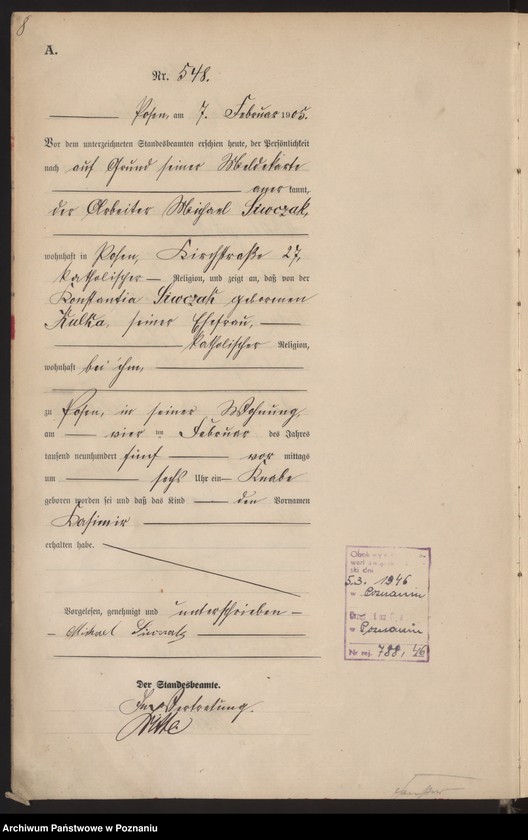 8
A.
Nr. 548.
Posen, am 7. Februar 1905.
Vor dem unterzeichneten Standesbeamten erschien heute, der Persönlichkeit
nach auf Grund seiner Meldekarte
aner kannt,
der Arbeiter Michael Siwczak,
wohnhaft in Posen, Kirchstraße 27,
katholischer Religion, und zeigte an, daß von der
Konstantia Siwczak geborenen
Kulka, seiner Ehefrau,
katholischer Religion,
wohnhaft bei ihm,
zu Posen, in seiner Wohnung,
am vier ten Februar des Jahres
tausend neunhundert fünf vor mittags
um sechs Uhr ein Knabe
geboren worden sei und daß das Kind den Vornamen
Kasimir
erhalten habe.
Vorgelesen, genehmigt und unterschrieben
Michael
Der Standesbeamte.
In Vertretung.
5.3. 1946
w Poznaniu
w Poznaniu
Nr rej. 788, 46
Archiwum Państwowe w Poznaniu